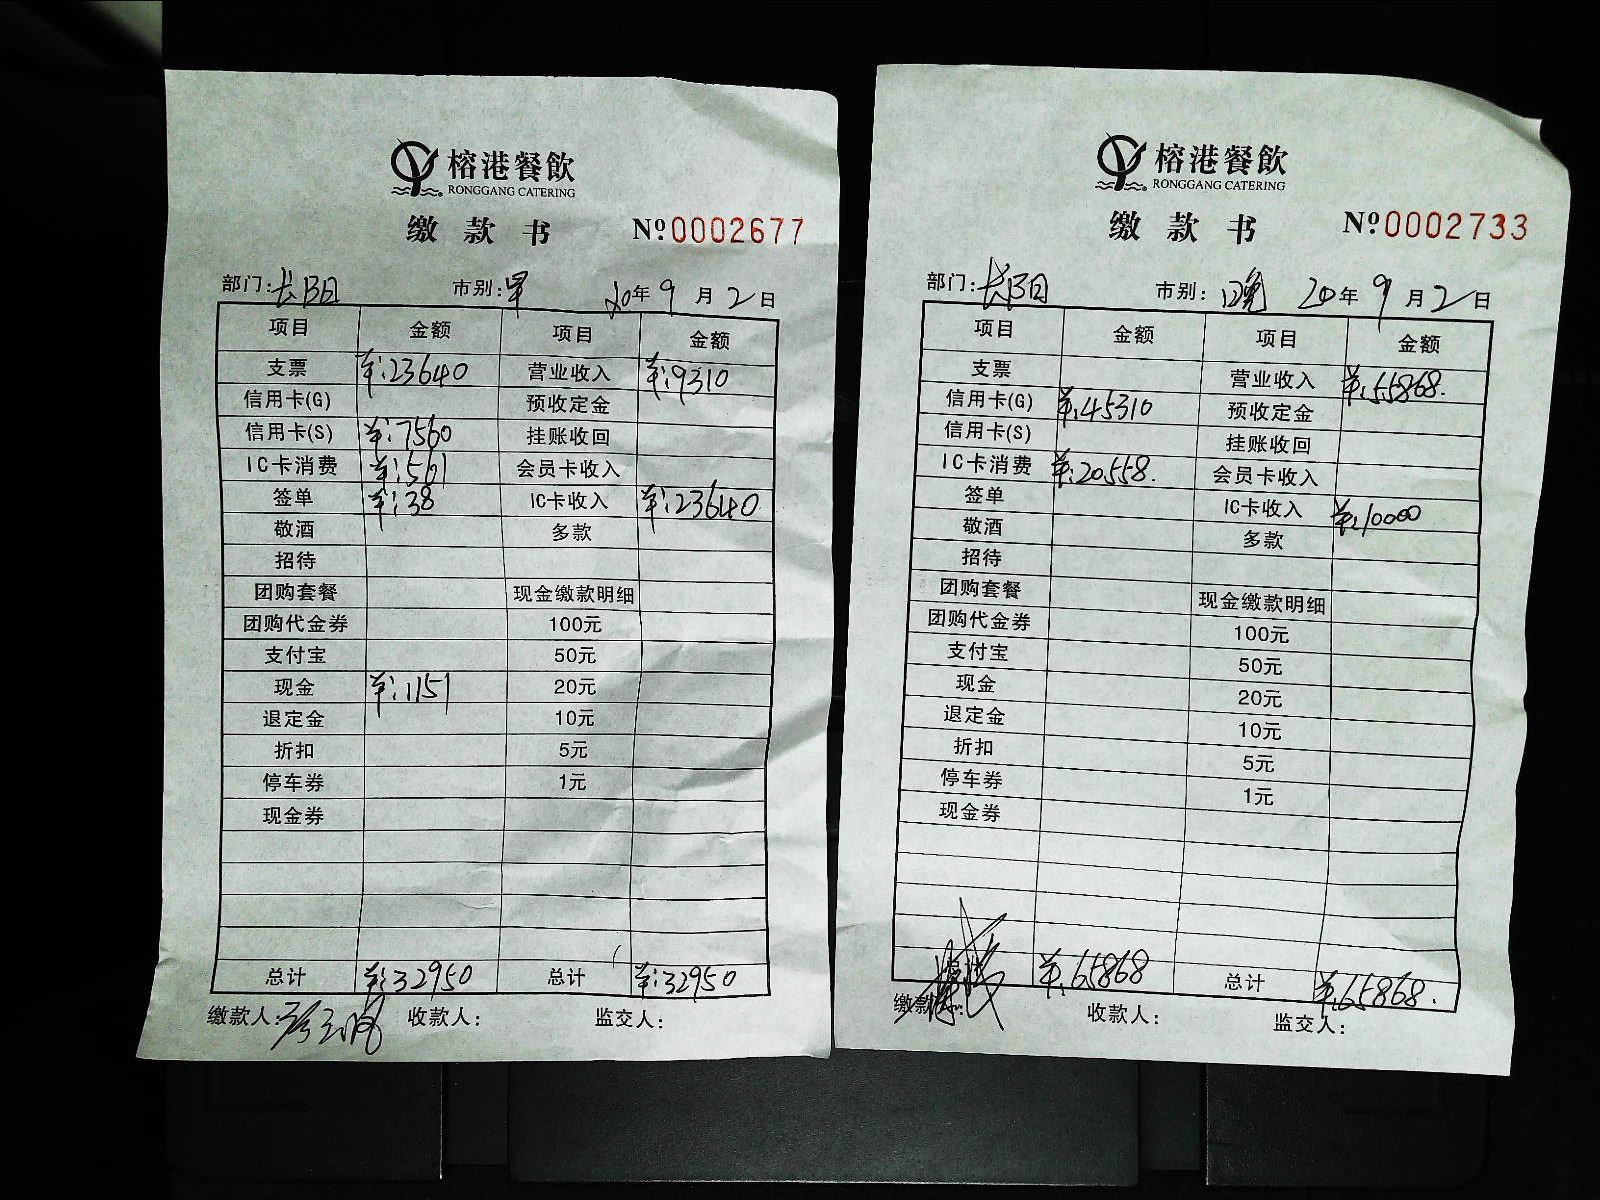 榕港餐飲
RONGGANG CATERING
缴款书 №0002677
部门:长阳 市别:早 20年9月2日
项目 金额 项目 金额
支票 ¥:23640 营业收入 ¥:9310
信用卡(G) 预收定金
信用卡(S) ¥:7560 挂账收回
IC卡消费 ¥:561 会员卡收入
签单 ¥:38 IC卡收入 ¥:23640
敬酒 多款
招待
团购套餐 现金缴款明细
团购代金券 100元
支付宝 50元
现金 ¥:1151 20元
退定金 10元
折扣 5元
停车券 1元
现金券
总计 ¥:32950 总计 ¥:32950
缴款人: 收款人: 监交人:
榕港餐飲
RONGGANG CATERING
缴款书 №0002733
部门:长阳 市别:晚 20年9月2日
项目 金额 项目 金额
支票 营业收入 ¥:55868.
信用卡(G) ¥:45310 预收定金
信用卡(S) 挂账收回
IC卡消费 ¥:20558. 会员卡收入
签单 IC卡收入 ¥:10000
敬酒 多款
招待
团购套餐 现金缴款明细
团购代金券 100元
支付宝 50元
现金 20元
退定金 10元
折扣 5元
停车券 1元
现金券
总计 ¥:65868 总计 ¥:65868.
缴款人: 收款人: 监交人: